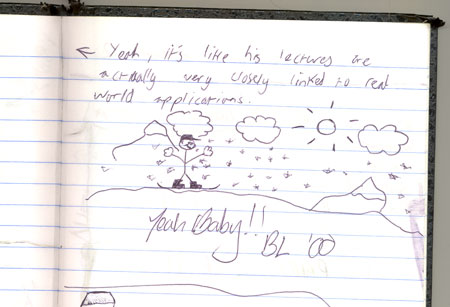 ← Yeah, it's like his lectures are
actually very closely linked to real
world applications.
Yeah Baby!!
BL '00